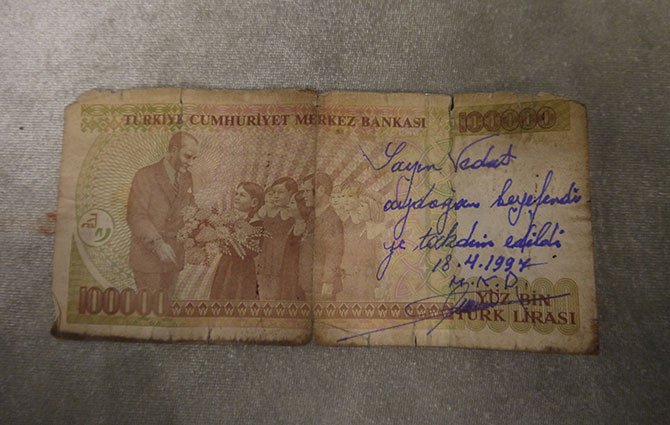 TÜRKİYE CUMHURİYET MERKEZ BANKASI
100000
Sayın Vedat
aydoğan beyefendi
ye takdim edildi
18.4.1997
M.K.D.
100000
YÜZ BİN
TÜRK LİRASI